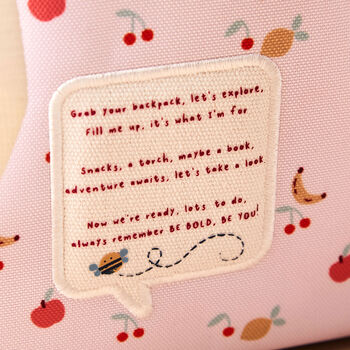 Grab your backpack, let's explore,
Fill me up, it's what I'm for
Snacks, a torch, maybe a book,
adventure awaits, let's take a look.
Now we're ready, lots to do,
always remember BE BOLD, BE YOU!